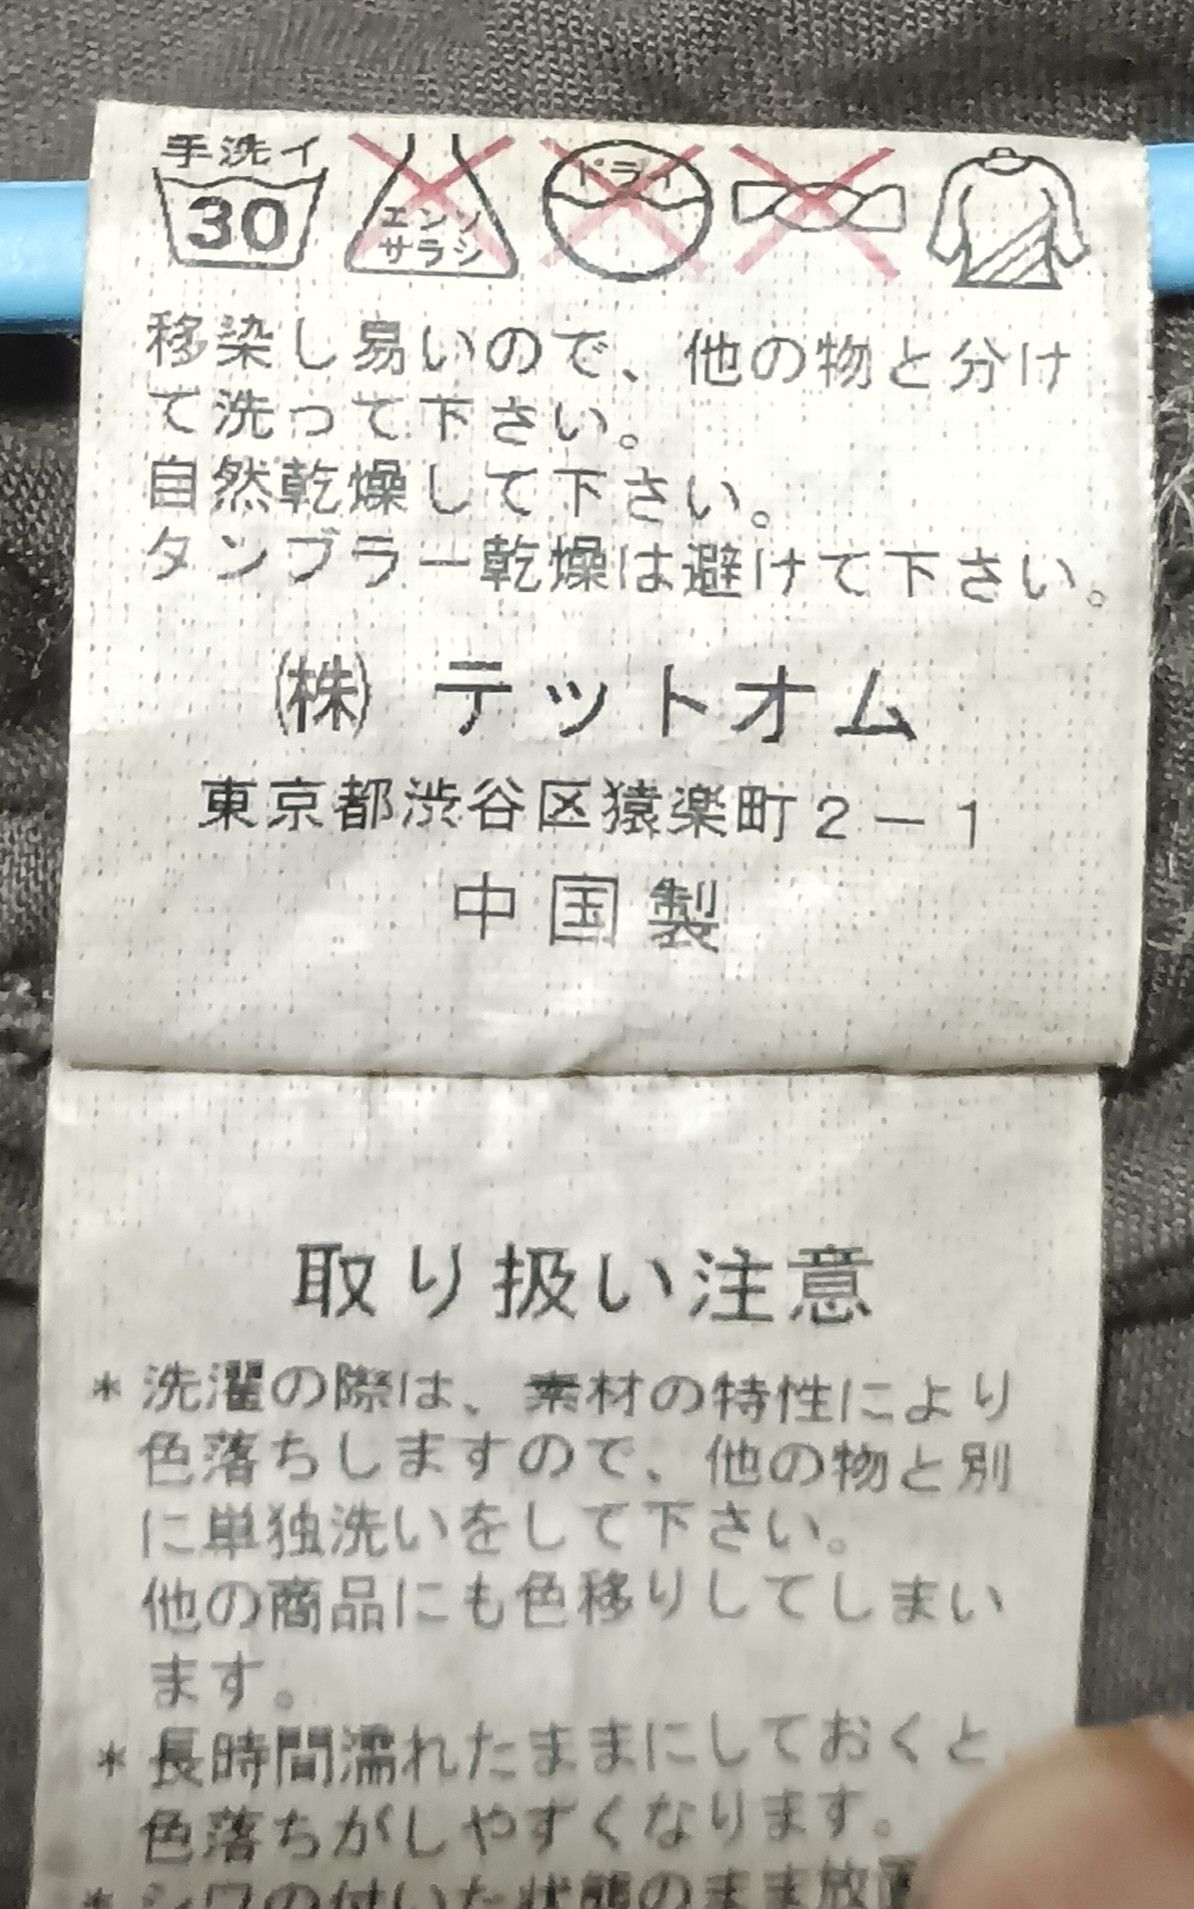 手洗イ
30
エンソ
サラシ
ドライ
移染し易いので、他の物と分け
て洗って下さい。
自然乾燥して下さい。
タンブラー乾燥は避けて下さい。
㈱ テットオム
東京都渋谷区猿楽町2-1
中国製
取り扱い注意
* 洗濯の際は、素材の特性により
色落ちしますので、他の物と別
に単独洗いをして下さい。
他の商品にも色移りしてしまい
ます。
* 長時間濡れたままにしておくと
色落ちがしやすくなります。
* シワの付いた状態のまま放置